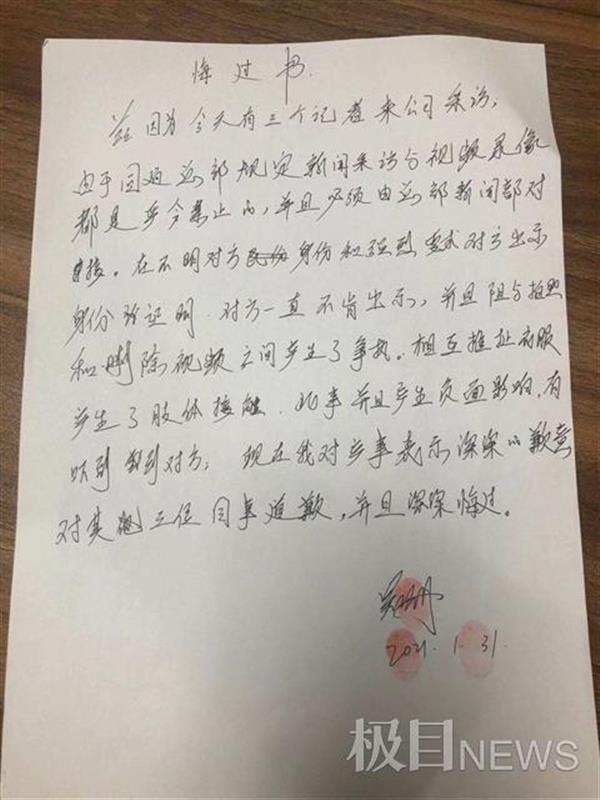 悔过书.
兹因为今天有三个记者来公司采访,
由于圆通总部规定新闻采访与视频录像
都是命令禁止的,并且必须由总部新闻部对
接。在不明对方身份和强烈要求对方出示
身份证证明.对方一直不肯出示,并且阻与拍照
和删除视频之间产生了争执。相互推扯衣服
产生了肢体接触.此事并且产生负面影响,有
吓到 到对方;现在我对此事表示深深的歉意
对其他三位同事道歉,并且深深悔过。
2021.1.31.
极目NEWS